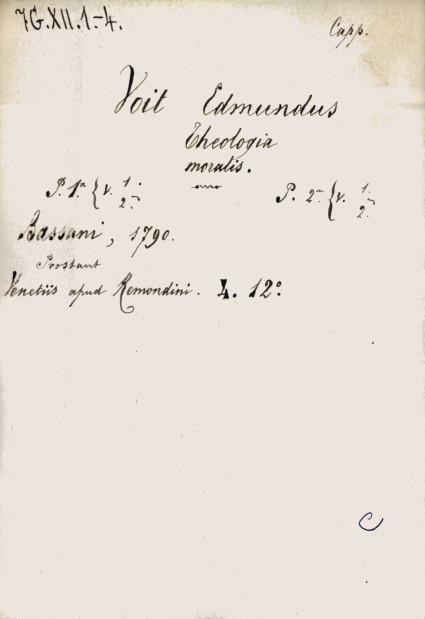 7G.XII.1-4.
Capp.
Voit Edmundus
Theologia
moralis.
P. 1.a { v. 1. 2.
P. 2.a { v. 1. 2.
Bassani, 1790.
Prostant
Venetiis apud Remondini. 4. 12.o
C